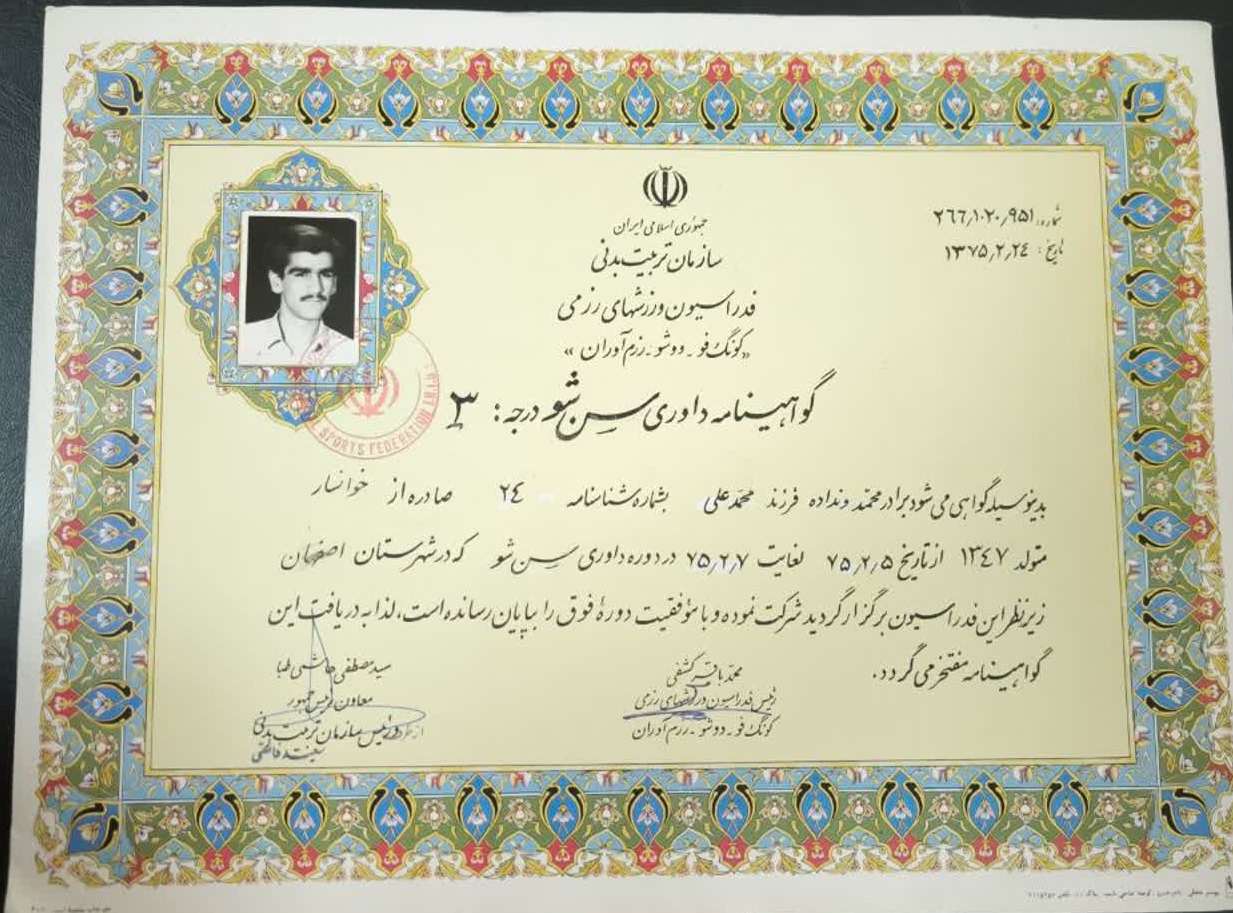 شماره: ۲۶۶٫۱۰۲۰٫۹۵۱
تاریخ: ۱۳۷۵٫۲٫۲۴
جمهوری اسلامی ایران
سازمان تربیت بدنی
فدراسیون ورزشهای رزمی
«کونگ فو - ووشو - رزم آوران»
گواهینامه داوری سن شو درجه: ۳
بدینوسیله گواهی می شود برادر محمد ونداده فرزند محمدعلی بشماره شناسنامه ۲۴ صادره از خوانسار
متولد ۱۳۴۷ از تاریخ ۷۵٫۲٫۵ لغایت ۷۵٫۲٫۷ در دوره داوری سن شو که در شهرستان اصفهان
زیر نظر این فدراسیون برگزار گردید شرکت نموده و با موفقیت دورهٔ فوق را بپایان رسانده است، لذا به دریافت این
گواهینامه مفتخر می گردد.
محمد باقر کشفی
رئیس فدراسیون ورزشهای رزمی
کونگ فو - ووشو - رزم آوران
سید مصطفی هاشمی طبا
معاون رئیس جمهور
و رئیس سازمان تربیت بدنی
SPORTS FEDERATION I.R.IRAN